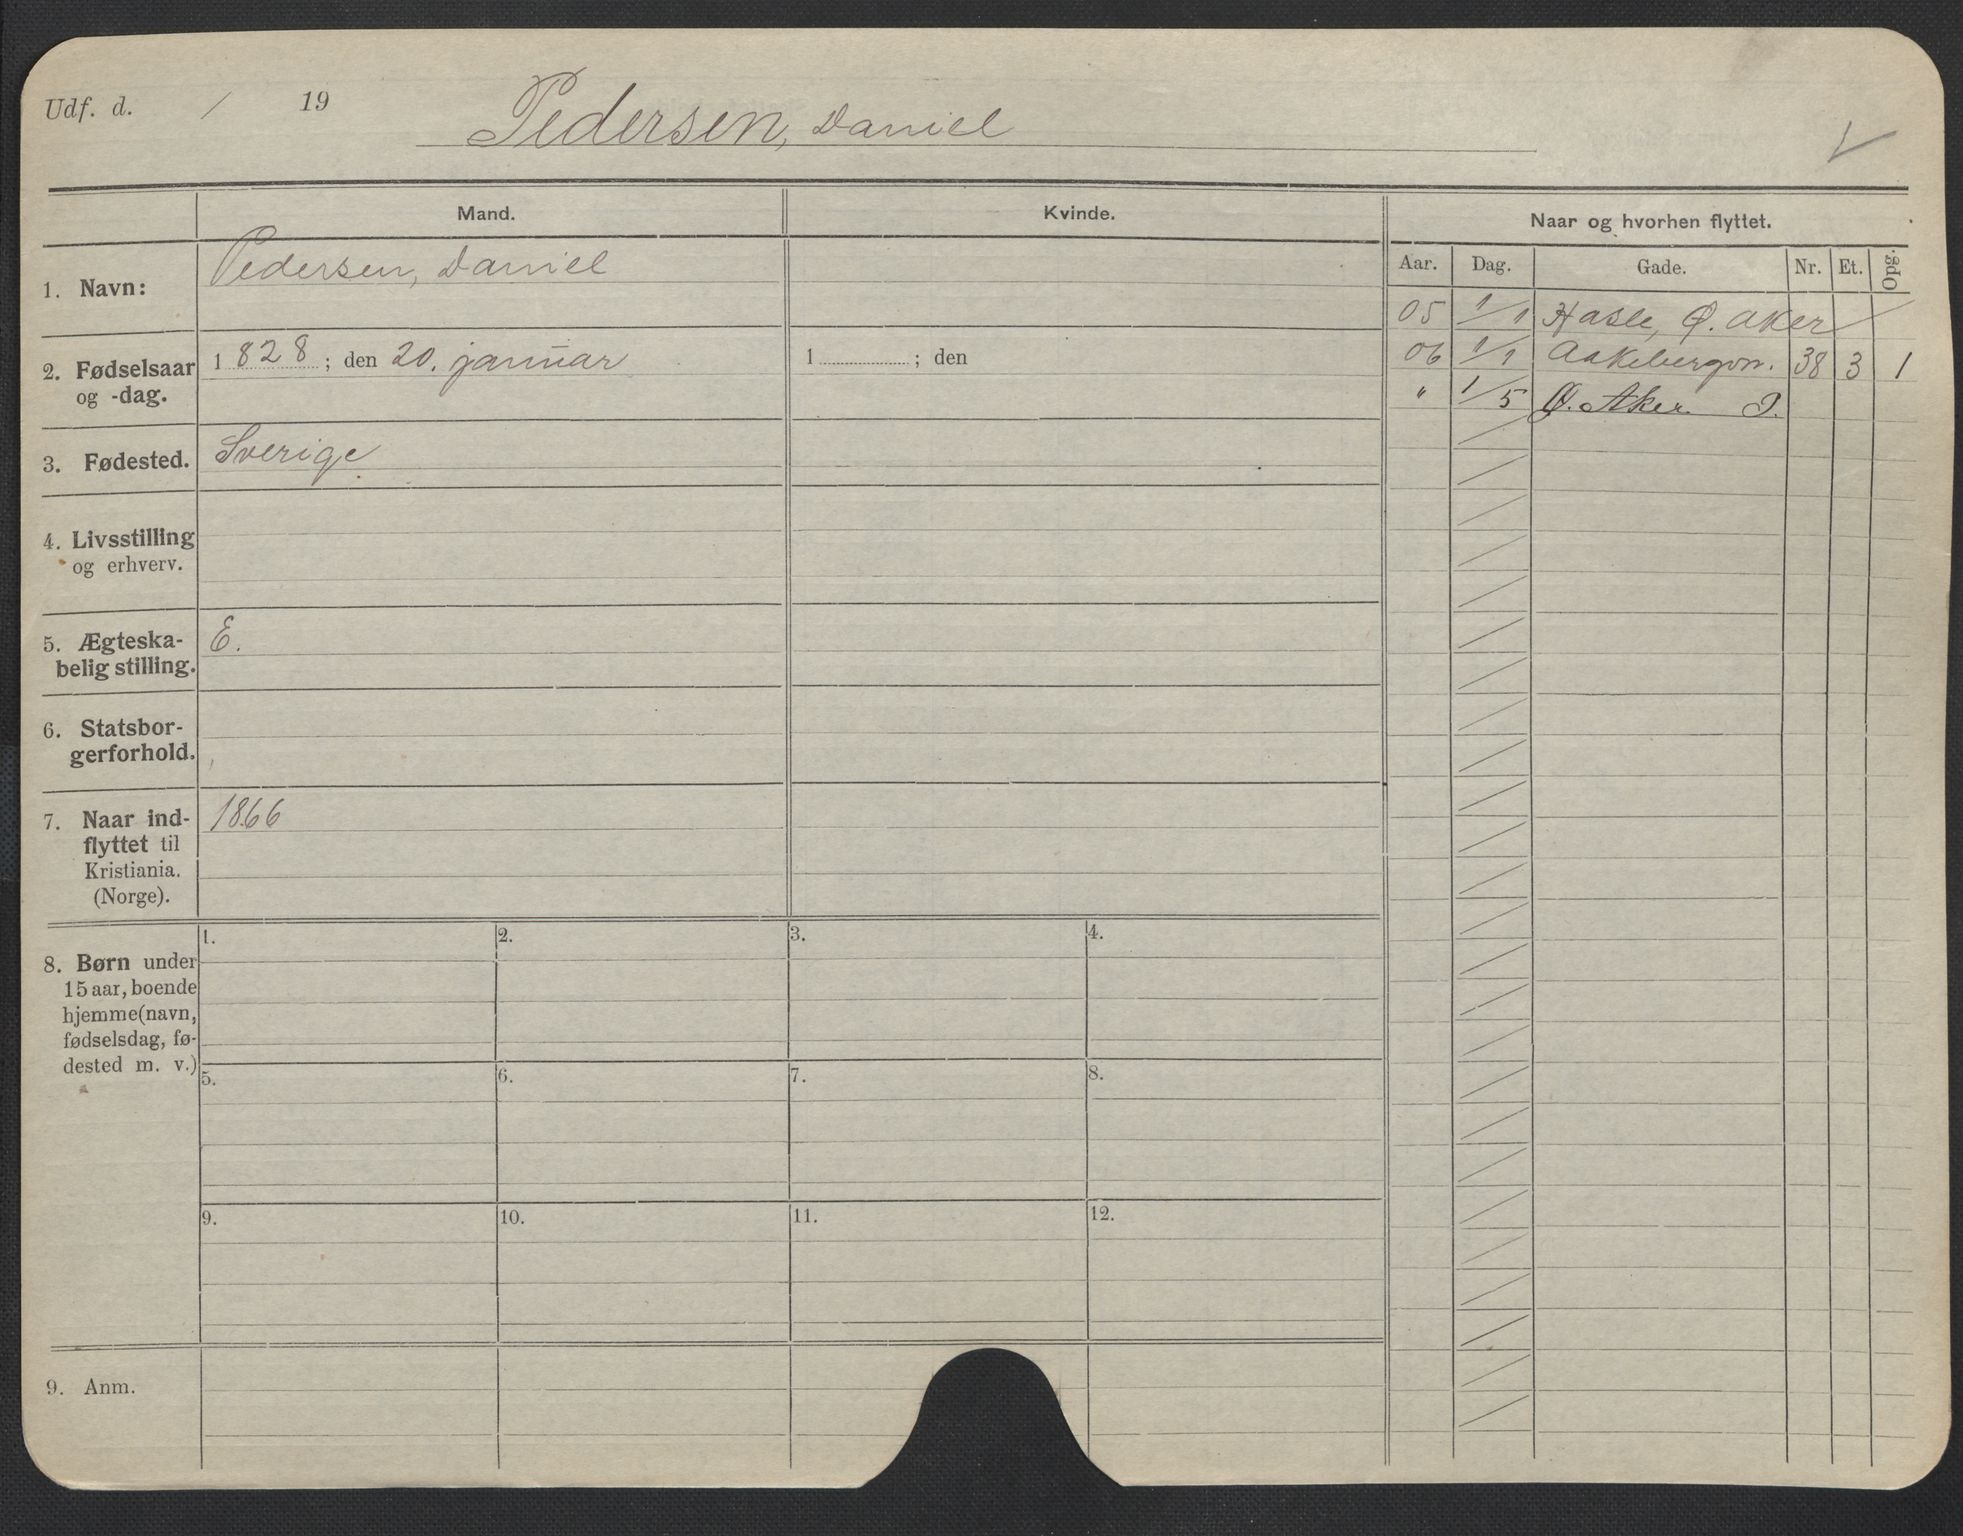 Udf. d. / 19
Pedersen, Daniel
Mand.
Kvinde.
Naar og hvorhen flyttet.
Aar. Dag. Gade. Nr. Et. Opg.
1. Navn:
Pedersen, Daniel
05 1/1 Hasle, Ø. Aker
2. Fødselsaar
og -dag.
1828; den 20. januar
1 ; den
06 1/1 Aakebergvn. 38 3 1
" 1/5 Ø. Aker
3. Fødested.
Sverige
4. Livsstilling
og erhverv.
5. Ægteska-
belig stilling.
E.
6. Statsbor-
gerforhold.
7. Naar ind-
flyttet til
Kristiania.
(Norge).
1866
8. Børn under
15 aar, boende
hjemme (navn,
fødselsdag, fø-
dested m. v.)
1. 2. 3. 4.
5. 6. 7. 8.
9. 10. 11. 12.
9. Anm.